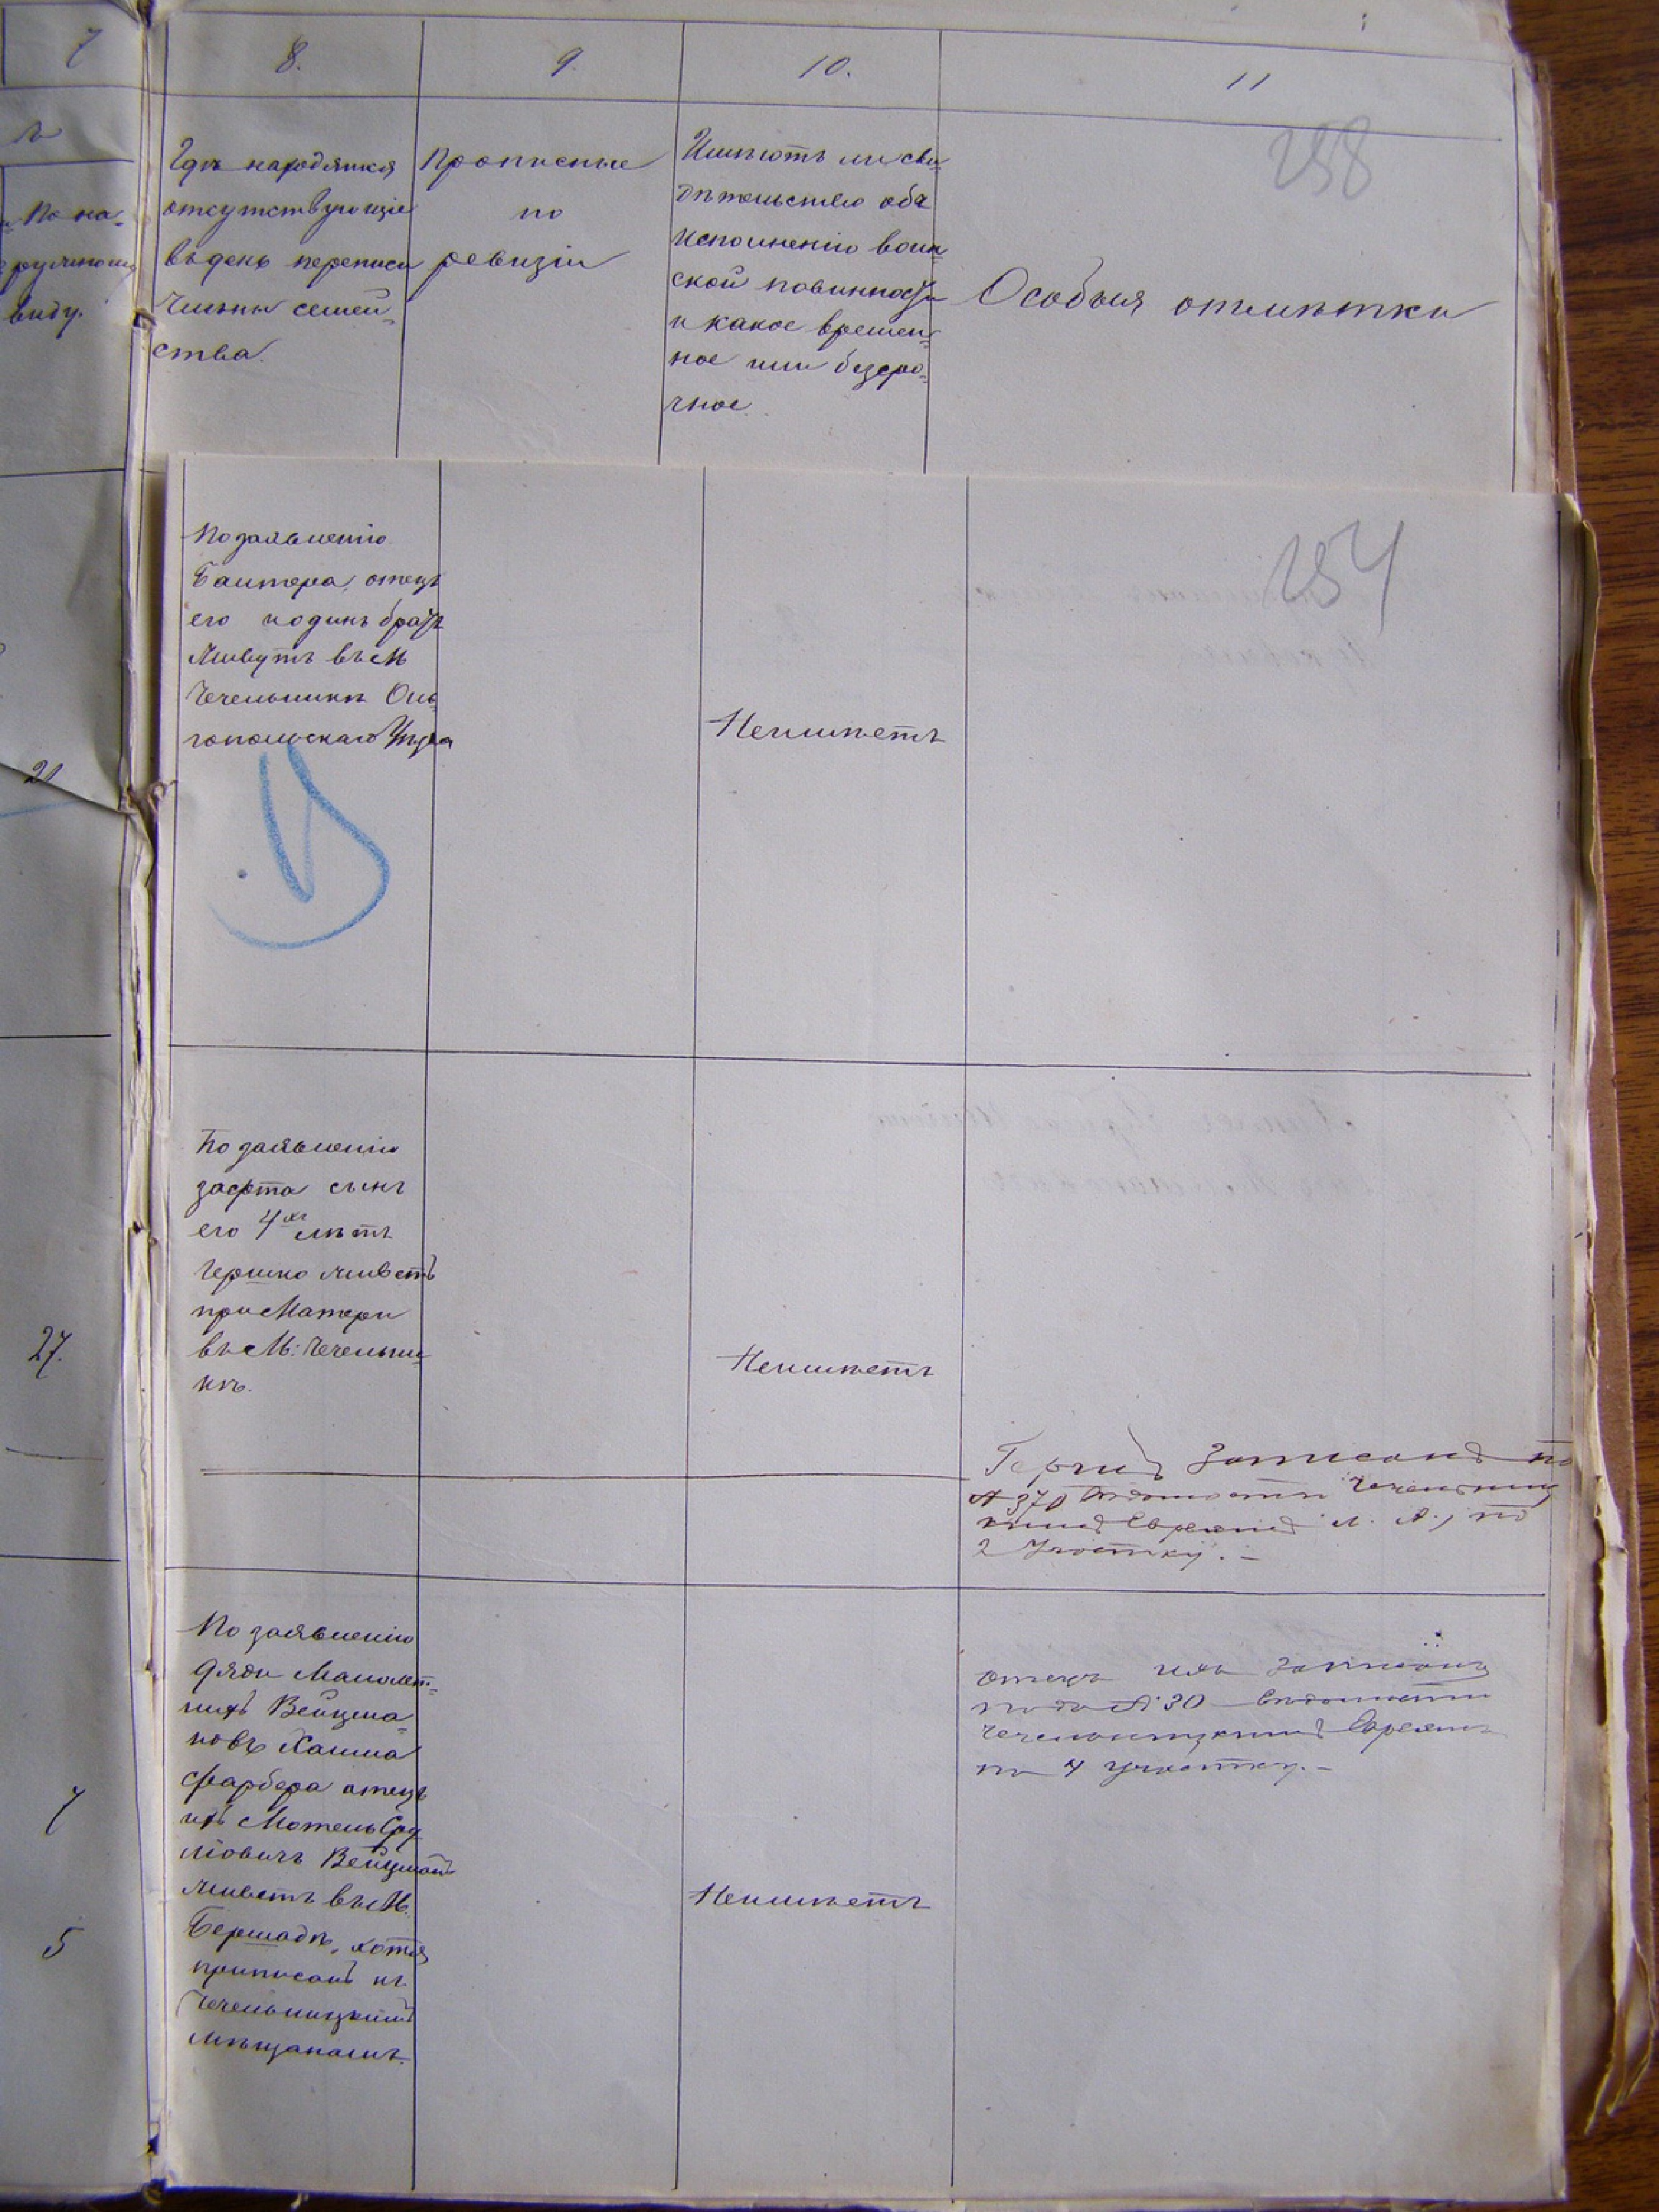 7
8.
9
10.
11
258
По на-
ружному
виду.
Гдѣ находятся
отсутствующіе
въ день переписи
члены семей-
ства.
Прописные
по
ревизіи
Имѣютъ ли сви-
дѣтельство объ
исполненію воин-
ской повинности
и какое времен-
ное или безсро-
чное.
Особыя отмѣтки
254
21
По заявленію
Балтера, отецъ
его и одинъ братъ
живутъ въ М
Чечельникѣ Оль-
гопольскаго Уѣзда
Неимѣетъ
27.
По заявленію
его 4хъ лѣтъ
Гершко живетъ
при Матери
въ М: Чечельни-
кѣ.
Неимѣетъ
записанъ по
370 вѣдомости Чечельниц
кихъ Евреевъ
2 Участку. -
7
5
По заявленію
дяди Малолѣт-
нихъ Вейцма-
новъ Хаима
Фарбера отецъ
ихъ Мотель Сру
лiовичъ Вейцманъ
живетъ въ М.
Бершадѣ, хотя
приписанъ къ
Чечельницкимъ
мѣщанамъ.
Неимѣетъ
отецъ ихъ записанъ
подъ № 30 вѣдомости
Чечельницкихъ Евреевъ
по 4 участку. -